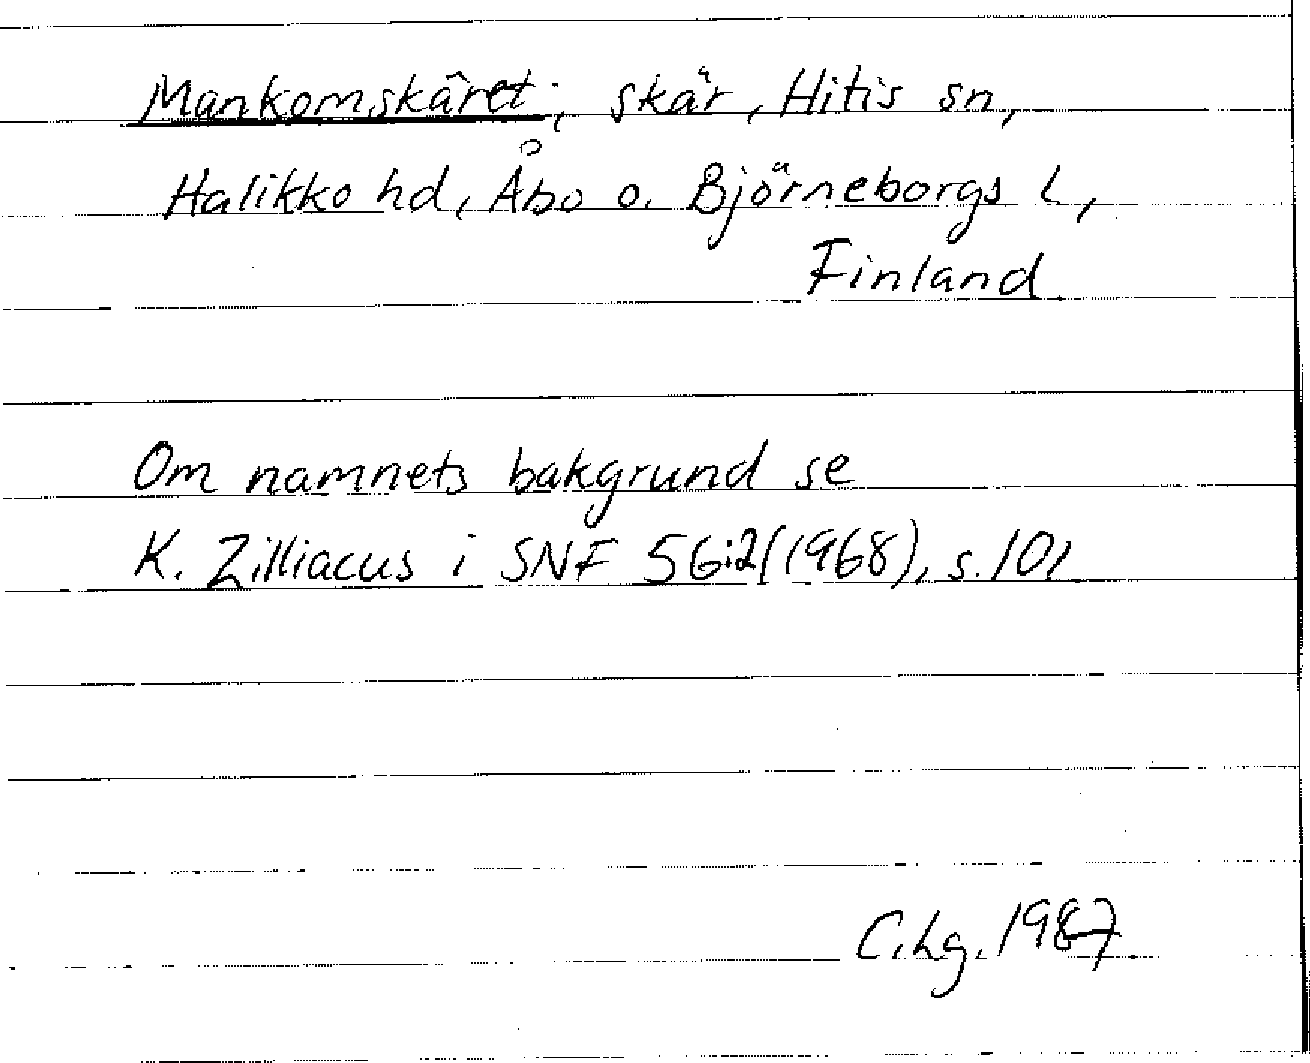 Mankomskäret, skär, Hitis sn,
Halikko hd, Åbo o. Björneborgs L,
Finland
Om namnets bakgrund se
K. Zilliacus i SNF 56:2(1968), s. 101
C.Lg. 1987